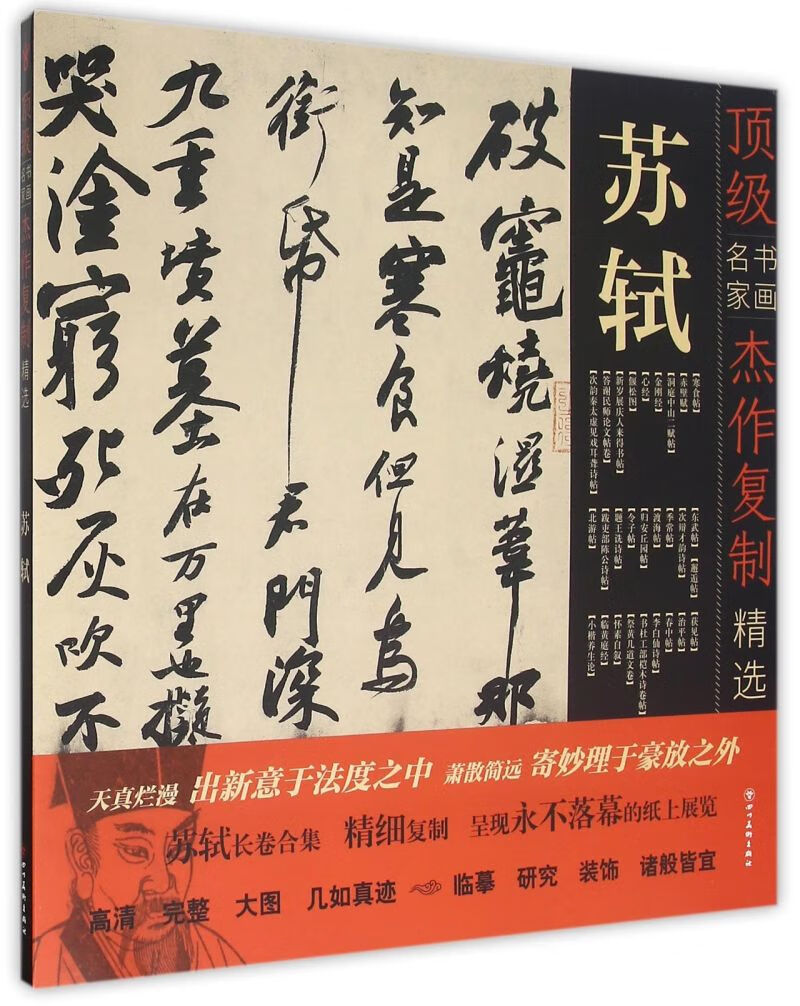 顶级
书画
名家
杰作复制
精选
苏轼
【寒食帖】
【赤壁赋】
【洞庭中山二赋帖】
【金刚经】
【心经】
【偃松图】
【新岁展庆人来得书帖】
【答谢民师论文帖卷】
【次韵秦太虚见戏耳聋诗帖】
【东武帖】【邂逅帖】
【次辩才韵诗帖】
【季常帖】
【渡海帖】
【归安丘园帖】
【令子帖】
【题王诜诗帖】
【跋吏部陈公诗帖】
【北游帖】
【获见帖】
【治平帖】
【春中帖】
【李白仙诗帖】
【书杜工部桤木诗卷帖】
【祭黄几道文卷】
【怀素自叙】
【临黄庭经】
【小楷养生论】
破竈燒濕葦那
知是寒食但見烏
銜帋君門深
九重墳墓在万里也擬
哭塗窮死灰吹不
天真烂漫 出新意于法度之中 萧散简远 寄妙理于豪放之外
苏轼长卷合集 精细复制 呈现永不落幕的纸上展览
高清 完整 大图 几如真迹 临摹 研究 装饰 诸般皆宜
四川美术出版社
顶级
书画
名家
杰作复制
精选
苏轼
四川美术出版社